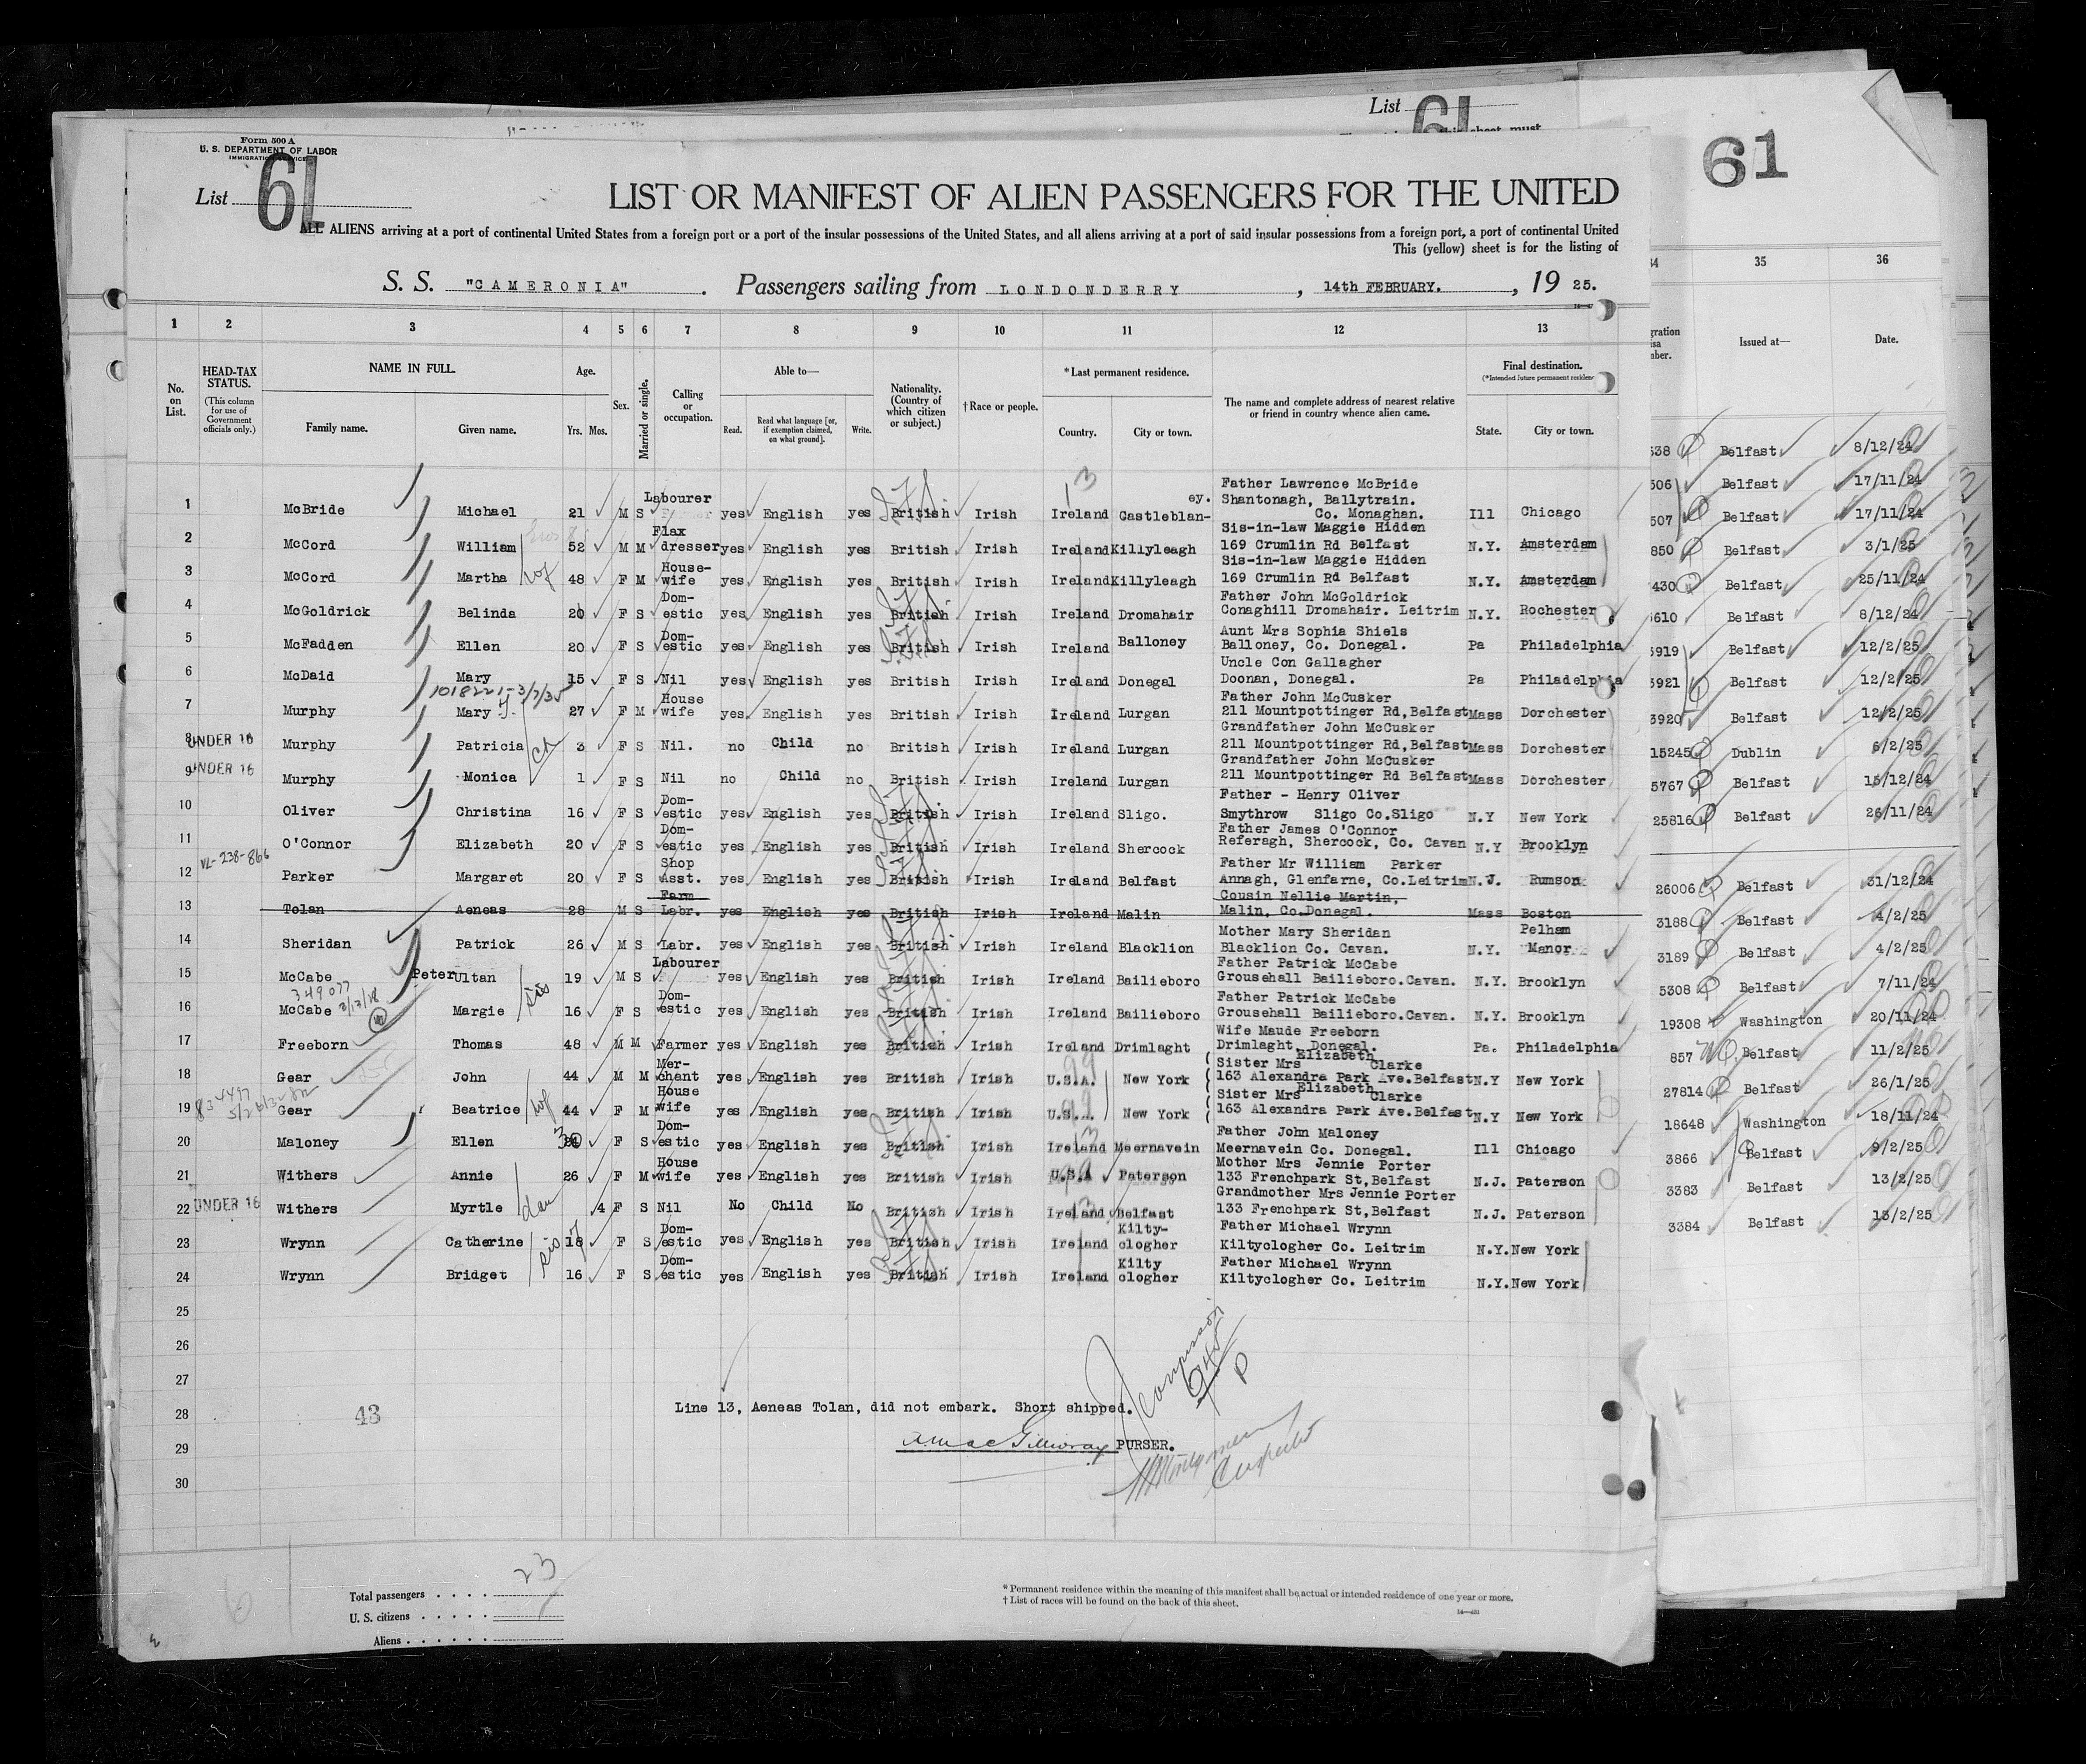 Form 500 A
U. S. DEPARTMENT OF LABOR
IMMIGRATION SERVICE
List 61
List 61
61
LIST OR MANIFEST OF ALIEN PASSENGERS FOR THE UNITED
ALL ALIENS arriving at a port of continental United States from a foreign port or a port of the insular possessions of the United States, and all aliens arriving at a port of said insular possessions from a foreign port, a port of continental United
This (yellow) sheet is for the listing of
S. S. "CAMERONIA". Passengers sailing from LONDONDERRY, 14th FEBRUARY., 1925.
1 2 3 4 5 6 7 8 9 10 11 12 13 34 35 36
No. on List.
HEAD-TAX STATUS.
(This column for use of Government officials only.)
NAME IN FULL.
Family name. Given name.
Age.
Yrs. Mos.
Sex.
Married or single.
Calling or occupation.
Able to—
Read. Read what language [or, if exemption claimed, on what ground]. Write.
Nationality. (Country of which citizen or subject.)
† Race or people.
* Last permanent residence.
Country. City or town.
The name and complete address of nearest relative or friend in country whence alien came.
Final destination.
(*Intended future permanent residence
State. City or town.
Issued at— Date.
1 McBride Michael 21 M S Labourer yes English yes British Irish Ireland Castleblan-ey. Father Lawrence McBride Shantonagh, Ballytrain. Co. Monaghan. Ill Chicago
2 McCord William 52 M M Flax dresser yes English yes British Irish Ireland Killyleagh Sis-in-law Maggie Hidden 169 Crumlin Rd Belfast N.Y. Amsterdam
3 McCord Martha wf 48 F M House-wife yes English yes British Irish Ireland Killyleagh Sis-in-law Maggie Hidden 169 Crumlin Rd Belfast N.Y. Amsterdam
4 McGoldrick Belinda 20 F S Dom-estic yes English yes British Irish Ireland Dromahair Father John McGoldrick Conaghill Dromahair. Leitrim N.Y. Rochester
5 McFadden Ellen 20 F S Dom-estic yes English yes British Irish Ireland Balloney Aunt Mrs Sophia Shiels Balloney, Co. Donegal. Pa Philadelphia
6 McDaid Mary 15 F S Nil yes English yes British Irish Ireland Donegal Uncle Con Gallagher Doonan, Donegal. Pa Philadelphia
1018221-3/7/35
7 Murphy Mary 27 F M House wife yes English yes British Irish Ireland Lurgan Father John McCusker 211 Mountpottinger Rd, Belfast Mass Dorchester
8 UNDER 16 Murphy Patricia ch 3 F S Nil. no Child no British Irish Ireland Lurgan Grandfather John McCusker 211 Mountpottinger Rd, Belfast Mass Dorchester
9 UNDER 16 Murphy Monica 1 F S Nil no Child no British Irish Ireland Lurgan Grandfather John McCusker 211 Mountpottinger Rd Belfast Mass Dorchester
10 Oliver Christina 16 F S Dom-estic yes English yes British Irish Ireland Sligo. Father - Henry Oliver Smythrow Sligo Co.Sligo N.Y New York
11 O'Connor Elizabeth 20 F S Dom-estic yes English yes British Irish Ireland Shercock Father James O'Connor Referagh, Shercock, Co. Cavan N.Y Brooklyn
VL-238-866
12 Parker Margaret 20 F S Shop Asst. yes English yes British Irish Ireland Belfast Father Mr William Parker Annagh, Glenfarne, Co.Leitrim N.J. Rumson
13 Tolan Aeneas 28 M S Farm Labr. yes English yes British Irish Ireland Malin Cousin Nellie Martin, Malin, Co.Donegal. Mass Boston
14 Sheridan Patrick 26 M S Labr. yes English yes British Irish Ireland Blacklion Mother Mary Sheridan Blacklion Co. Cavan. N.Y. Pelham Manor
15 McCabe Peter Ultan 19 M S Labourer yes English yes British Irish Ireland Bailieboro Father Patrick McCabe Grousehall Bailieboro.Cavan. N.Y. Brooklyn
349077
16 McCabe Margie sis 16 F S Dom-estic yes English yes British Irish Ireland Bailieboro Father Patrick McCabe Grousehall Bailieboro.Cavan. N.Y. Brooklyn
17 Freeborn Thomas 48 M M Farmer yes English yes British Irish Ireland Drimlaght Wife Maude Freeborn Drimlaght, Donegal. Pa. Philadelphia
18 Gear John 44 M M Mer-chant yes English yes British Irish U.S.A. New York Sister Mrs Elizabeth Clarke 163 Alexandra Park Ave.Belfast N.Y New York
19 Gear Beatrice wf 44 F M House wife yes English yes British Irish U.S.A. New York Sister Mrs Elizabeth Clarke 163 Alexandra Park Ave.Belfast N.Y New York
20 Maloney Ellen 30 F S Dom-estic yes English yes British Irish Ireland Meernavein Father John Maloney Meernavein Co. Donegal. Ill Chicago
21 Withers Annie 26 F M House wife yes English yes British Irish U.S.A Paterson Mother Mrs Jennie Porter 133 Frenchpark St,Belfast N.J. Paterson
22 UNDER 16 Withers Myrtle dau 4 F S Nil No Child No British Irish Ireland Belfast Grandmother Mrs Jennie Porter 133 Frenchpark St,Belfast N.J. Paterson
23 Wrynn Catherine 18 F S Dom-estic yes English yes British Irish Ireland Kilty-clogher Father Michael Wrynn Kiltyclogher Co. Leitrim N.Y. New York
24 Wrynn Bridget sis 16 F S Dom-estic yes English yes British Irish Ireland Kilty clogher Father Michael Wrynn Kiltyclogher Co. Leitrim N.Y. New York
25
26
27
28
29
30
Belfast 8/12/24
Belfast 17/11/24
507 Belfast 17/11/24
850 Belfast 3/1/25
430 Belfast 25/11/24
6610 Belfast 8/12/24
5919 Belfast 12/2/25
5921 Belfast 12/2/25
3920 Belfast 12/2/25
15245 Dublin 6/2/25
5767 Belfast 15/12/24
25816 Belfast 26/11/24
26006 Belfast 31/12/24
3188 Belfast 4/2/25
3189 Belfast 4/2/25
5308 Belfast 7/11/24
19308 Washington 20/11/24
857 Belfast 11/2/25
27814 Belfast 26/1/25
18648 Washington 18/11/24
3866 Belfast 9/2/25
3383 Belfast 13/2/25
3384 Belfast 13/2/25
Line 13, Aeneas Tolan, did not embark. Short shipped.
PURSER.
43
Total passengers . . . . 23
U. S. citizens . . . . .
Aliens . . . . . .
* Permanent residence within the meaning of this manifest shall be actual or intended residence of one year or more.
† List of races will be found on the back of this sheet.